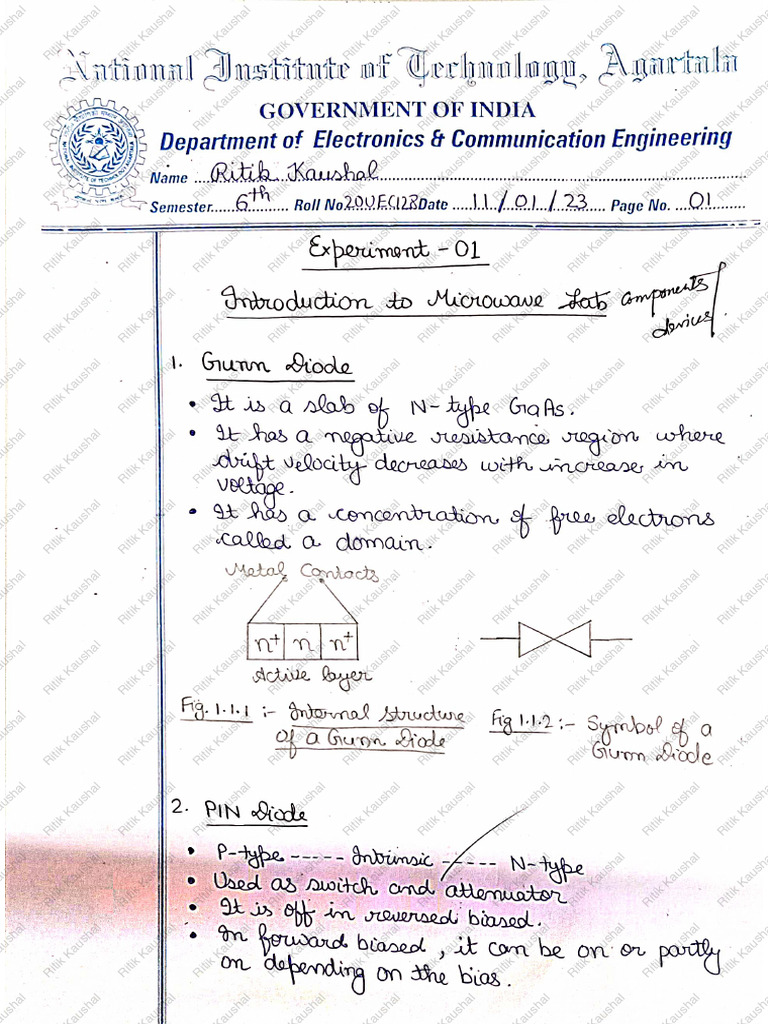 National Institute of Technology, Agartala
GOVERNMENT OF INDIA
Department of Electronics & Communication Engineering
Name Ritik Kaushal
Semester 6th Roll No 20UEC128 Date 11/01/23 Page No. 01
Experiment - 01
Introduction to Microwave Lab components/
devices.
1. Gunn Diode
• It is a slab of N-type GaAs.
• It has a negative resistance region where
drift velocity decreases with increase in
voltage.
• It has a concentration of free electrons
called a domain.
Metal Contacts
n+ n n+
Active layer
Fig. 1.1.1 :- Internal Structure
of a Gunn Diode
Fig 1.1.2 :- Symbol of a
Gunn Diode
2. PIN Diode
• P-type ----- Intrinsic ----- N-type
• Used as switch and attenuator
• It is off in reversed biased.
• In forward biased, it can be on or partly
on depending on the bias.
Ritik Kaushal